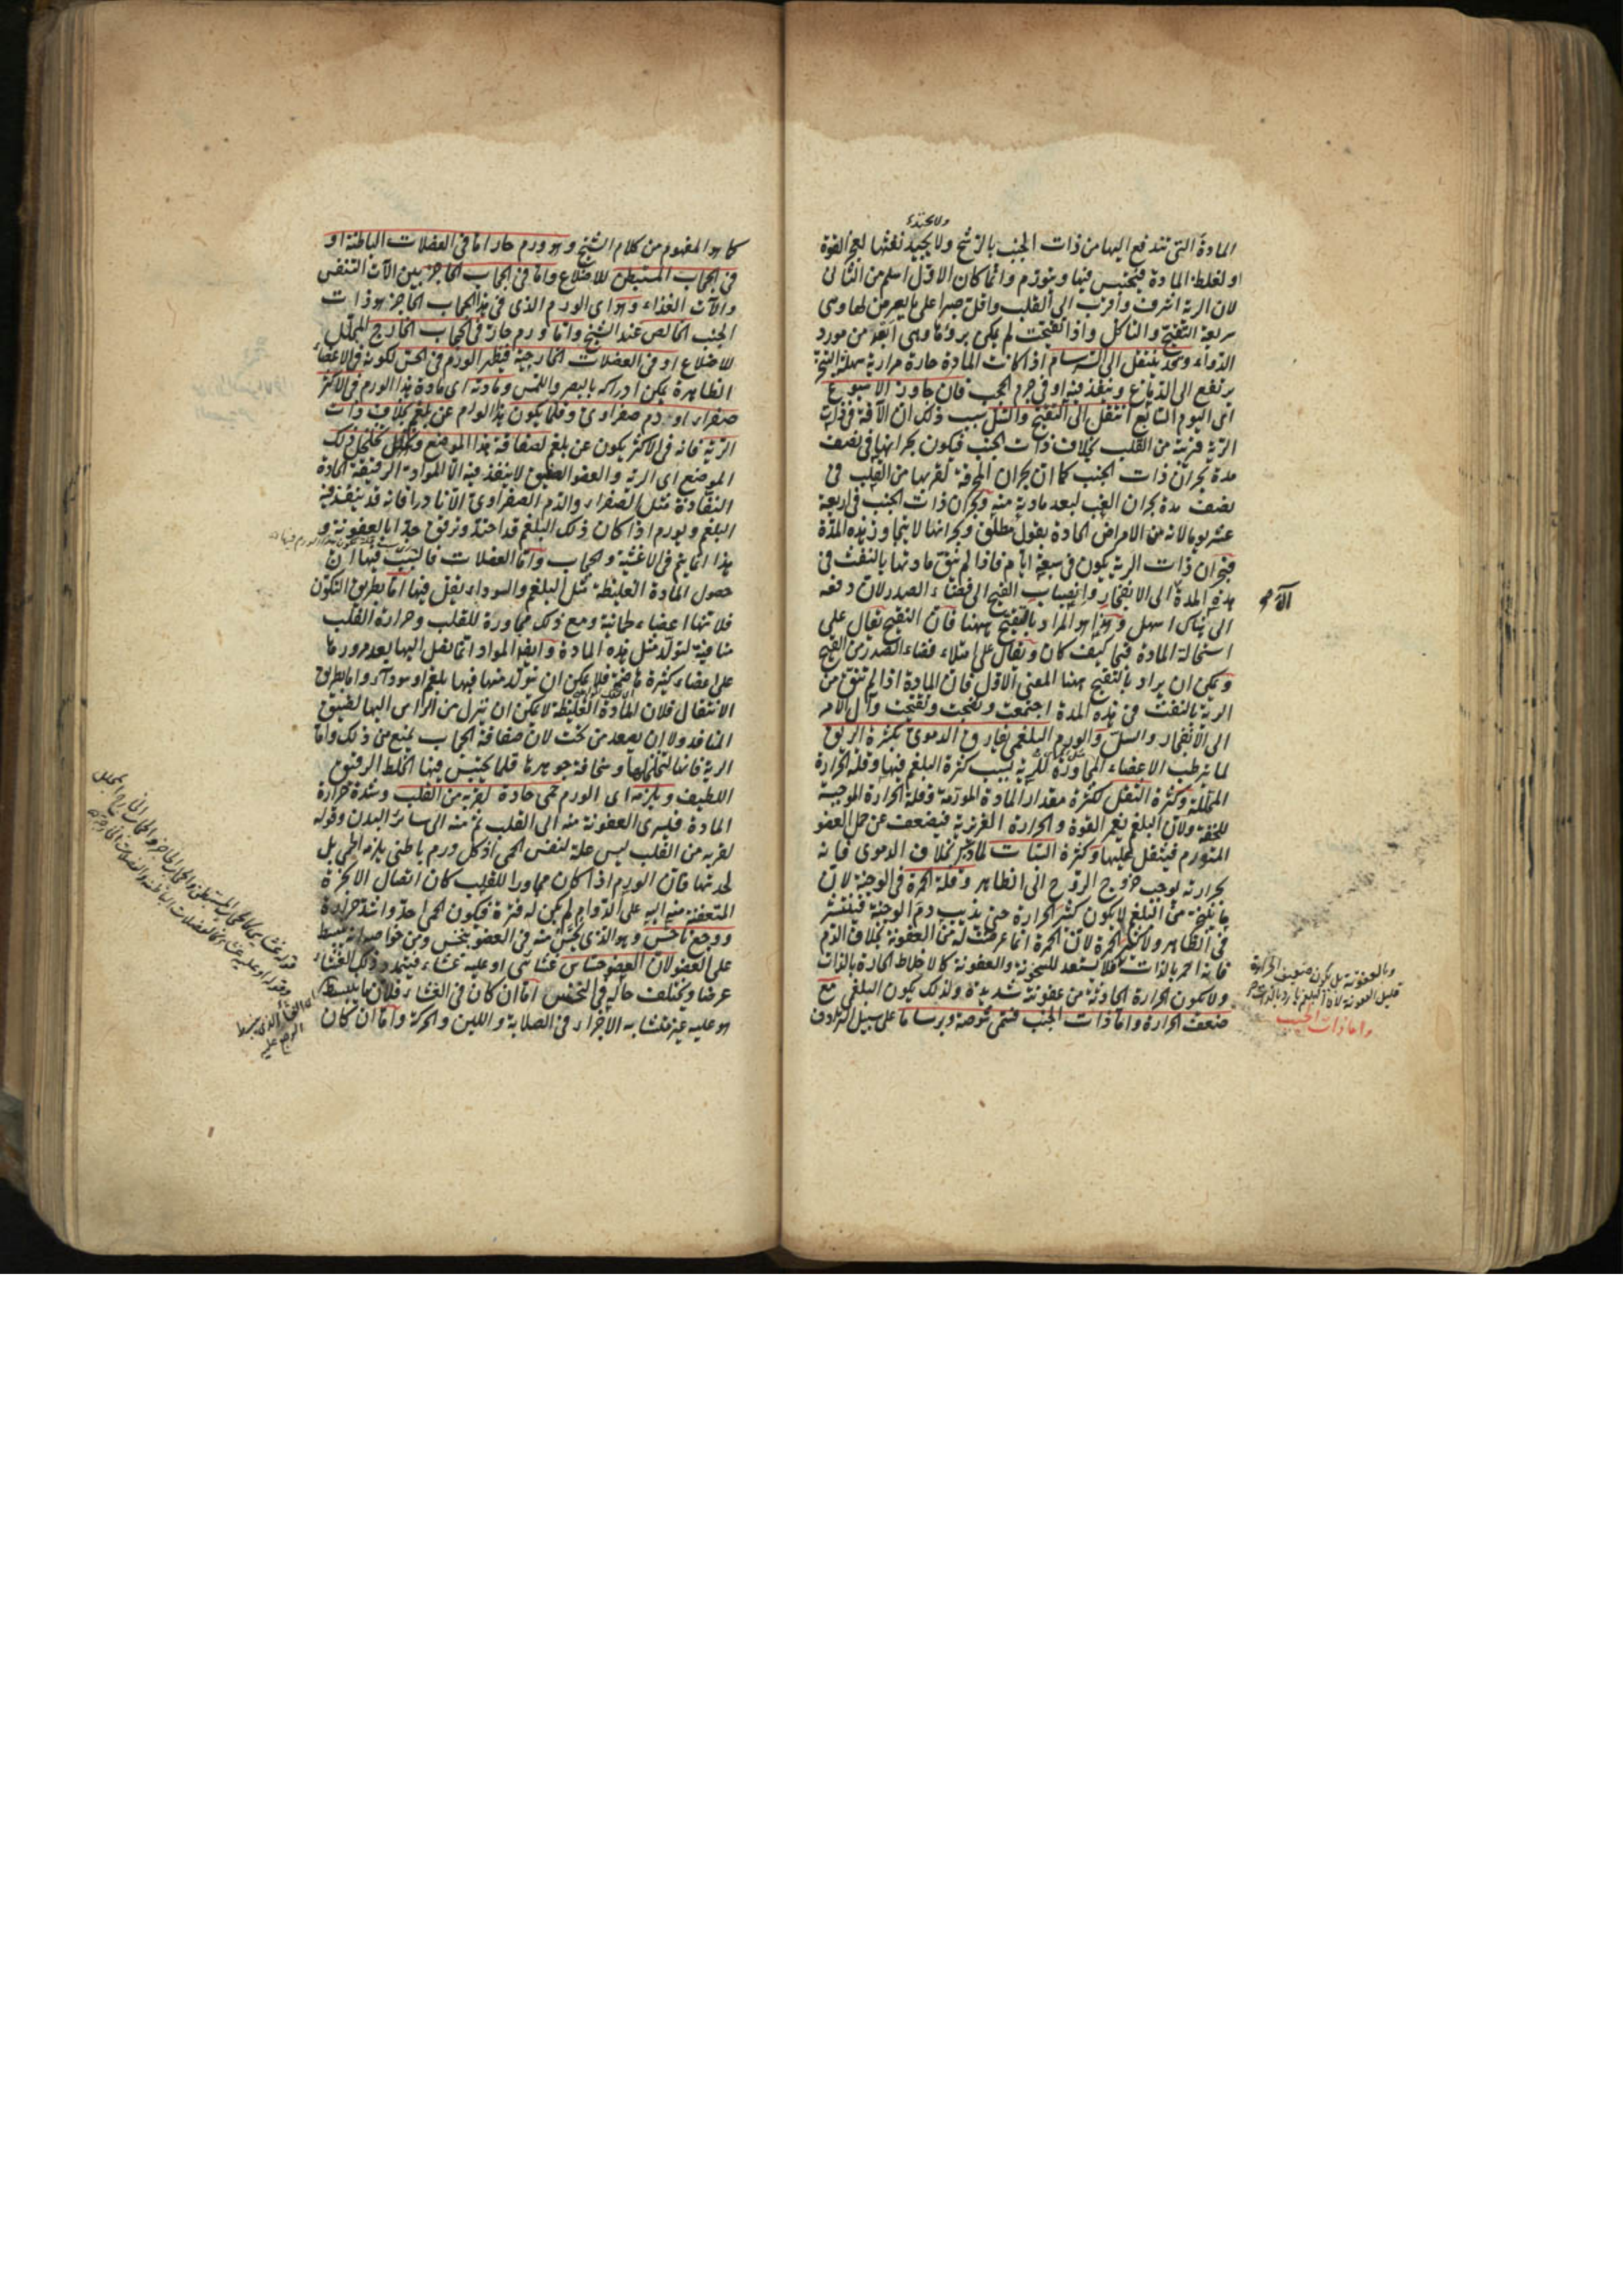 ولا يجتذ
المادة التي تندفع اليها من ذات الجنب بالترشح ولا يجيد نفثها لعجز القوة
او لغلظ المادة فيحتبس فيها ويتورم وانما كان الاول اسلم من الثانى
لان الرية اشرف واقرب الى القلب واقل صبرا على ما يعرض لها وهى
سريعة التقيح والتاكل واذا تقيحت لم يكن برؤها وهى ابعد من مورد
الدواء وقد ينتقل الى السرسام اذا كانت المادة حارة مرارية سهلة
يرتفع الى الدماغ وينفذ فيه او في جرم الحجب فان جاوز الاسبوع
اى اليوم السابع انتقل الى التقيح والسل بسبب ذلك ان الآفة في ذات
الرية قريبة من القلب بخلاف ذات الجنب فيكون بحرانها في نصف
مدة بحران ذات الجنب كما ان بحران المحرقة لقربها من القلب في
نصف مدة بحران الغب لبعد مادته منه وبحران ذات الجنب في اربعة
عشر يوما لانه من الامراض الحادة بقول مطلق وبحرانها لا يتجاوز هذه المدة
فبحران ذات الرية يكون في سبعة ايام فاذا لم ينق مادتها بالنفث في
هذه المدة آل الى الانفجار وانصباب القيح الى فضاء الصدر لان دفعه
الى هناك اسهل وهذا هو المراد بالتقيح ههنا فان التقيح يقال على
استحالة المادة قيحا كيف كان ويقال على امتلاء فضاء الصدر من القيح
ويمكن ان يراد بالتقيح ههنا المعنى الاول فان المادة اذا لم تنق من
الرية بالنفث في هذه المدة اجتمعت ونضجت وتقيحت وآل الامر
الى الانفجار والسل والورم البلغمى يفارق الدموى بكثرة الريق
لما يترطب الاعضاء المجاورة للرية بسبب كثرة البلغم فيها وقلة الحرارة
المحللة وكثرة الثقل لكثرة مقدار المادة المورمة وقلة الحرارة الموجبة
للخفة ولان البلغم يغمر القوة والحرارة الغريزية فيضعف عن حمل العضو
المتورم فيثقل عليها وكثرة السبات بخلاف الدموى فانه
بحرارته يوجب خروج الروح الى الظاهر وقلة الحمرة في الوجنة لان
ما يتبخر من البلغم لا يكون كثير الحرارة حتى يذيب دم الوجنة فينتشر
في الظاهر ولا كثير الحمرة لان الحمرة انما عرضت له من العفونة بخلاف الدم
فانه احمر بالذات فلا يستعد للسخونة والعفونة كالاخلاط الحارة بالذات
ولا يكون الحرارة الحادثة من عفونته شديدة ولذلك يكون البلغمى مع
ضعف الحرارة واما ذات الجنب فتسمى شوصة وبرساما على سبيل الترادف
وبالعفونة بل يكون ضعيف الحرارة
قليل العفونة لان البلغم بارد بالذات
واما ذات الجنب
كما هو المفهوم من كلام الشيخ وهو ورم حار اما في العضلات الباطنة او
في الحجاب المستبطن للاضلاع واما في الحجاب الحاجز بين آلات التنفس
وآلات الغذاء وهو اى الورم الذى في هذا الحجاب الحاجز هو ذات
الجنب الخالص عند الشيخ واما ورم حار في الحجاب الخارج المجلل
للاضلاع او في العضلات الخارجية فيظهر الورم في الحس لكونه في الاعضاء
الظاهرة يمكن ادراكه بالبصر واللمس ومادته اى مادة هذا الورم في الاكثر
صفراء او دم صفراوى وقلما يكون هذا الورم عن بلغم بخلاف ذات
الرية فانه في الاكثر يكون عن بلغم لصفاقة هذا الموضع وتخلخل ذلك
الموضع اى الرية والعضو الصفيق لا ينفذ فيه الا المواد الرقيقة الحادة
النفاذة مثل الصفراء والدم الصفراوى الا نادرا فانه قد ينفذ فيه
البلغم ويورم اذا كان ذلك البلغم قد احتد ورق جدا بالعفونة و
هذا انما يتم في الاغشية والحجاب واما العضلات فالسبب فيها ان
حصول المادة الغليظة مثل البلغم والسوداء يقل فيها اما بطريق التكون
فلانها اعضاء لحمانية ومع ذلك مجاورة للقلب وحرارة القلب
منافية لتولد مثل هذه المادة وايضا المواد انما تصل اليها بعد مرورها
على اعضاء كثيرة ناضجة فلا يمكن ان يتولد منها فيها بلغم او سوداء واما بطريق
الانتقال فلان المادة الغليظة لا يمكن ان تنزل من الراس اليها لضيق
المنافذ ولا ان يصعد من تحت لان صفاقة الحجاب يمنع من ذلك واما
الرية فانها لتخلخلها وسخافة جوهرها قلما يحتبس فيها الخلط الرقيق
اللطيف ويلزمه اى الورم حمى حادة لقربه من القلب وشدة حرارة
المادة فيسرى العفونة منه الى القلب ثم منه الى سائر البدن وقوله
لقربه من القلب ليس علة لنفس الحمى اذ كل ورم باطنى يلزمه الحمى بل
لحدتها فان الورم اذا كان مجاورا للقلب كان اتصال الابخرة
المتعفنة منه اليه على الدوام لم يكن له فترة فيكون الحمى احد واشد حرارة
ووجع ناخس وهو الذى يحس منه في العضو بنخس ومن خواصه انه ينبسط
على العضو لان العضو حساس غشائى او عليه غشاء فيتمدد ذلك الغشاء
عرضا ويختلف حاله في النخس اما ان كان في الغشاء فلان ما ينبسط
هو عليه غير متشابه الاجزاء في الصلابة واللين والحركة واما ان كان